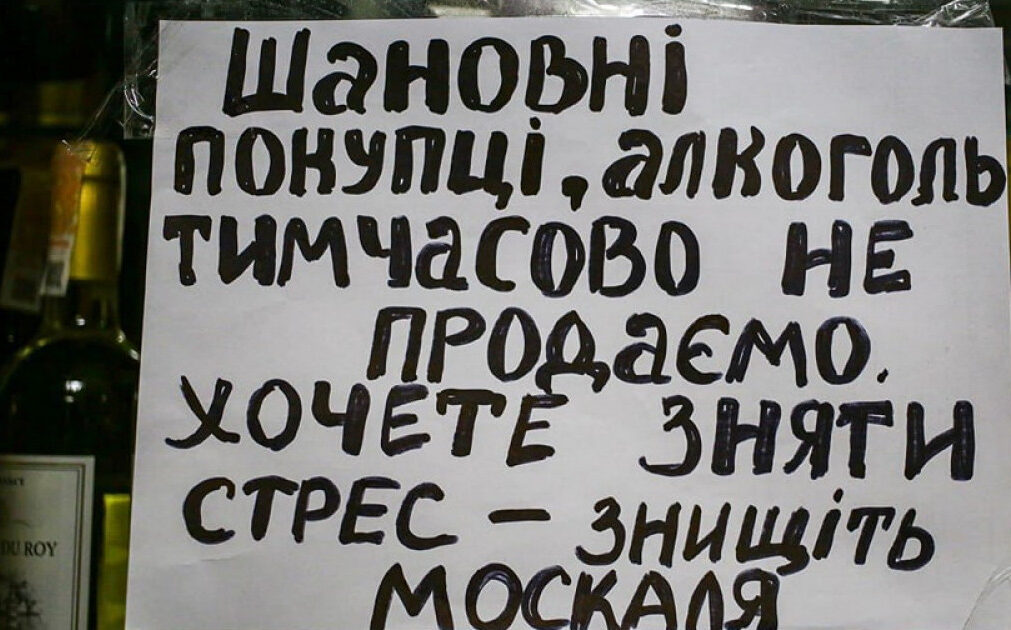 Шановні
покупці, алкоголь
тимчасово не
продаємо.
Хочете зняти
стрес – знищіть
москаля
DU ROY